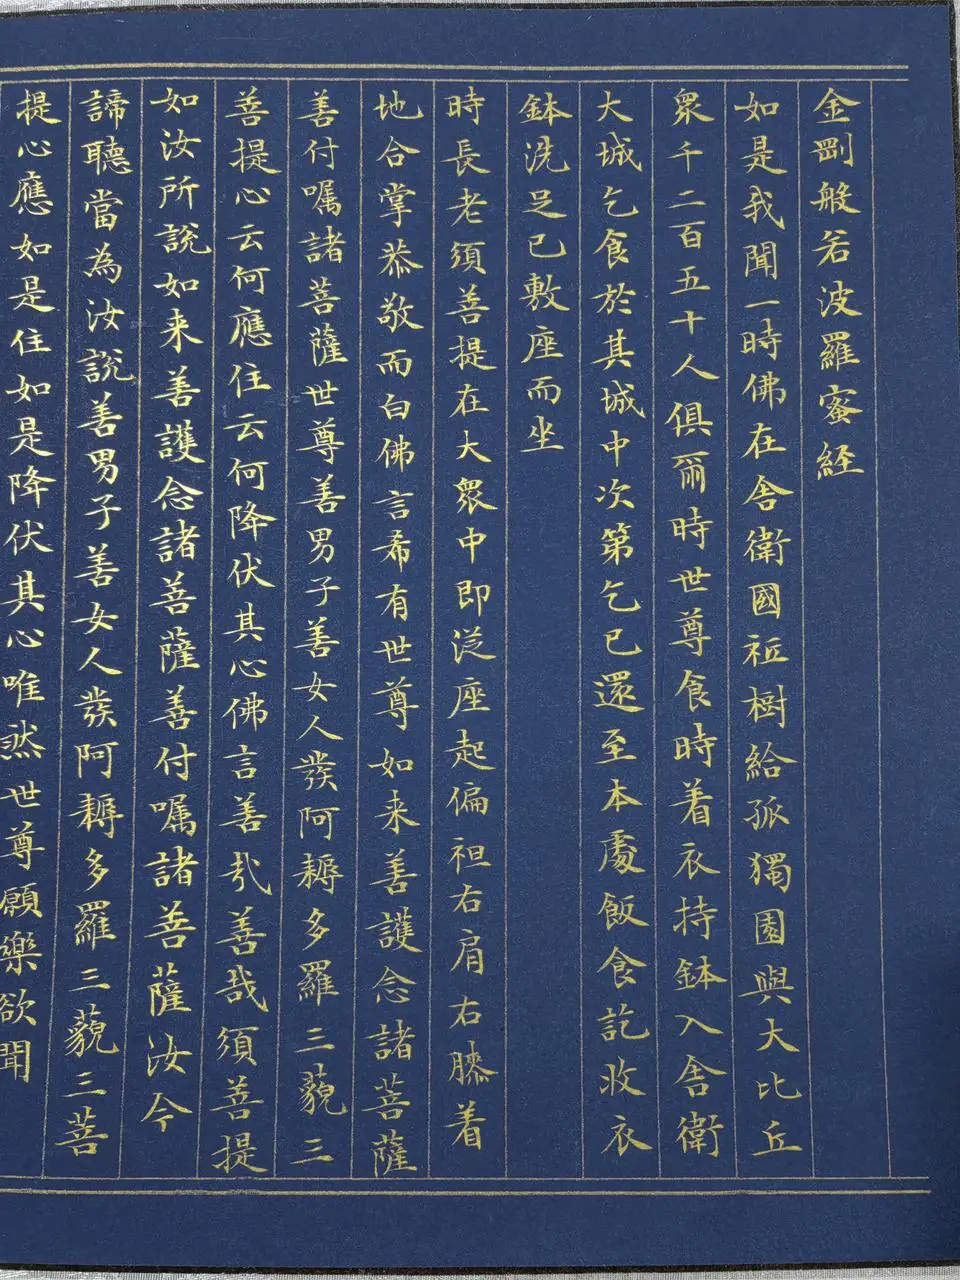 金剛般若波羅蜜經
如是我聞一時佛在舍衛國祇樹給孤獨園與大比丘
眾千二百五十人俱爾時世尊食時着衣持鉢入舍衛
大城乞食於其城中次第乞已還至本處飯食訖收衣
鉢洗足已敷座而坐
時長老須善提在大眾中即從座起偏袒右肩右膝着
地合掌恭敬而白佛言希有世尊如来善護念諸菩薩
善付嘱諸菩薩世尊善男子善女人發阿耨多羅三藐三
善提心云何應住云何降伏其心佛言善哉善哉須菩提
如汝所說如来善護念諸菩薩善付嘱諸菩薩汝今
諦聽當為汝說善男子善女人發阿耨多羅三藐三菩
提心應如是住如是降伏其心唯然世尊願樂欲聞